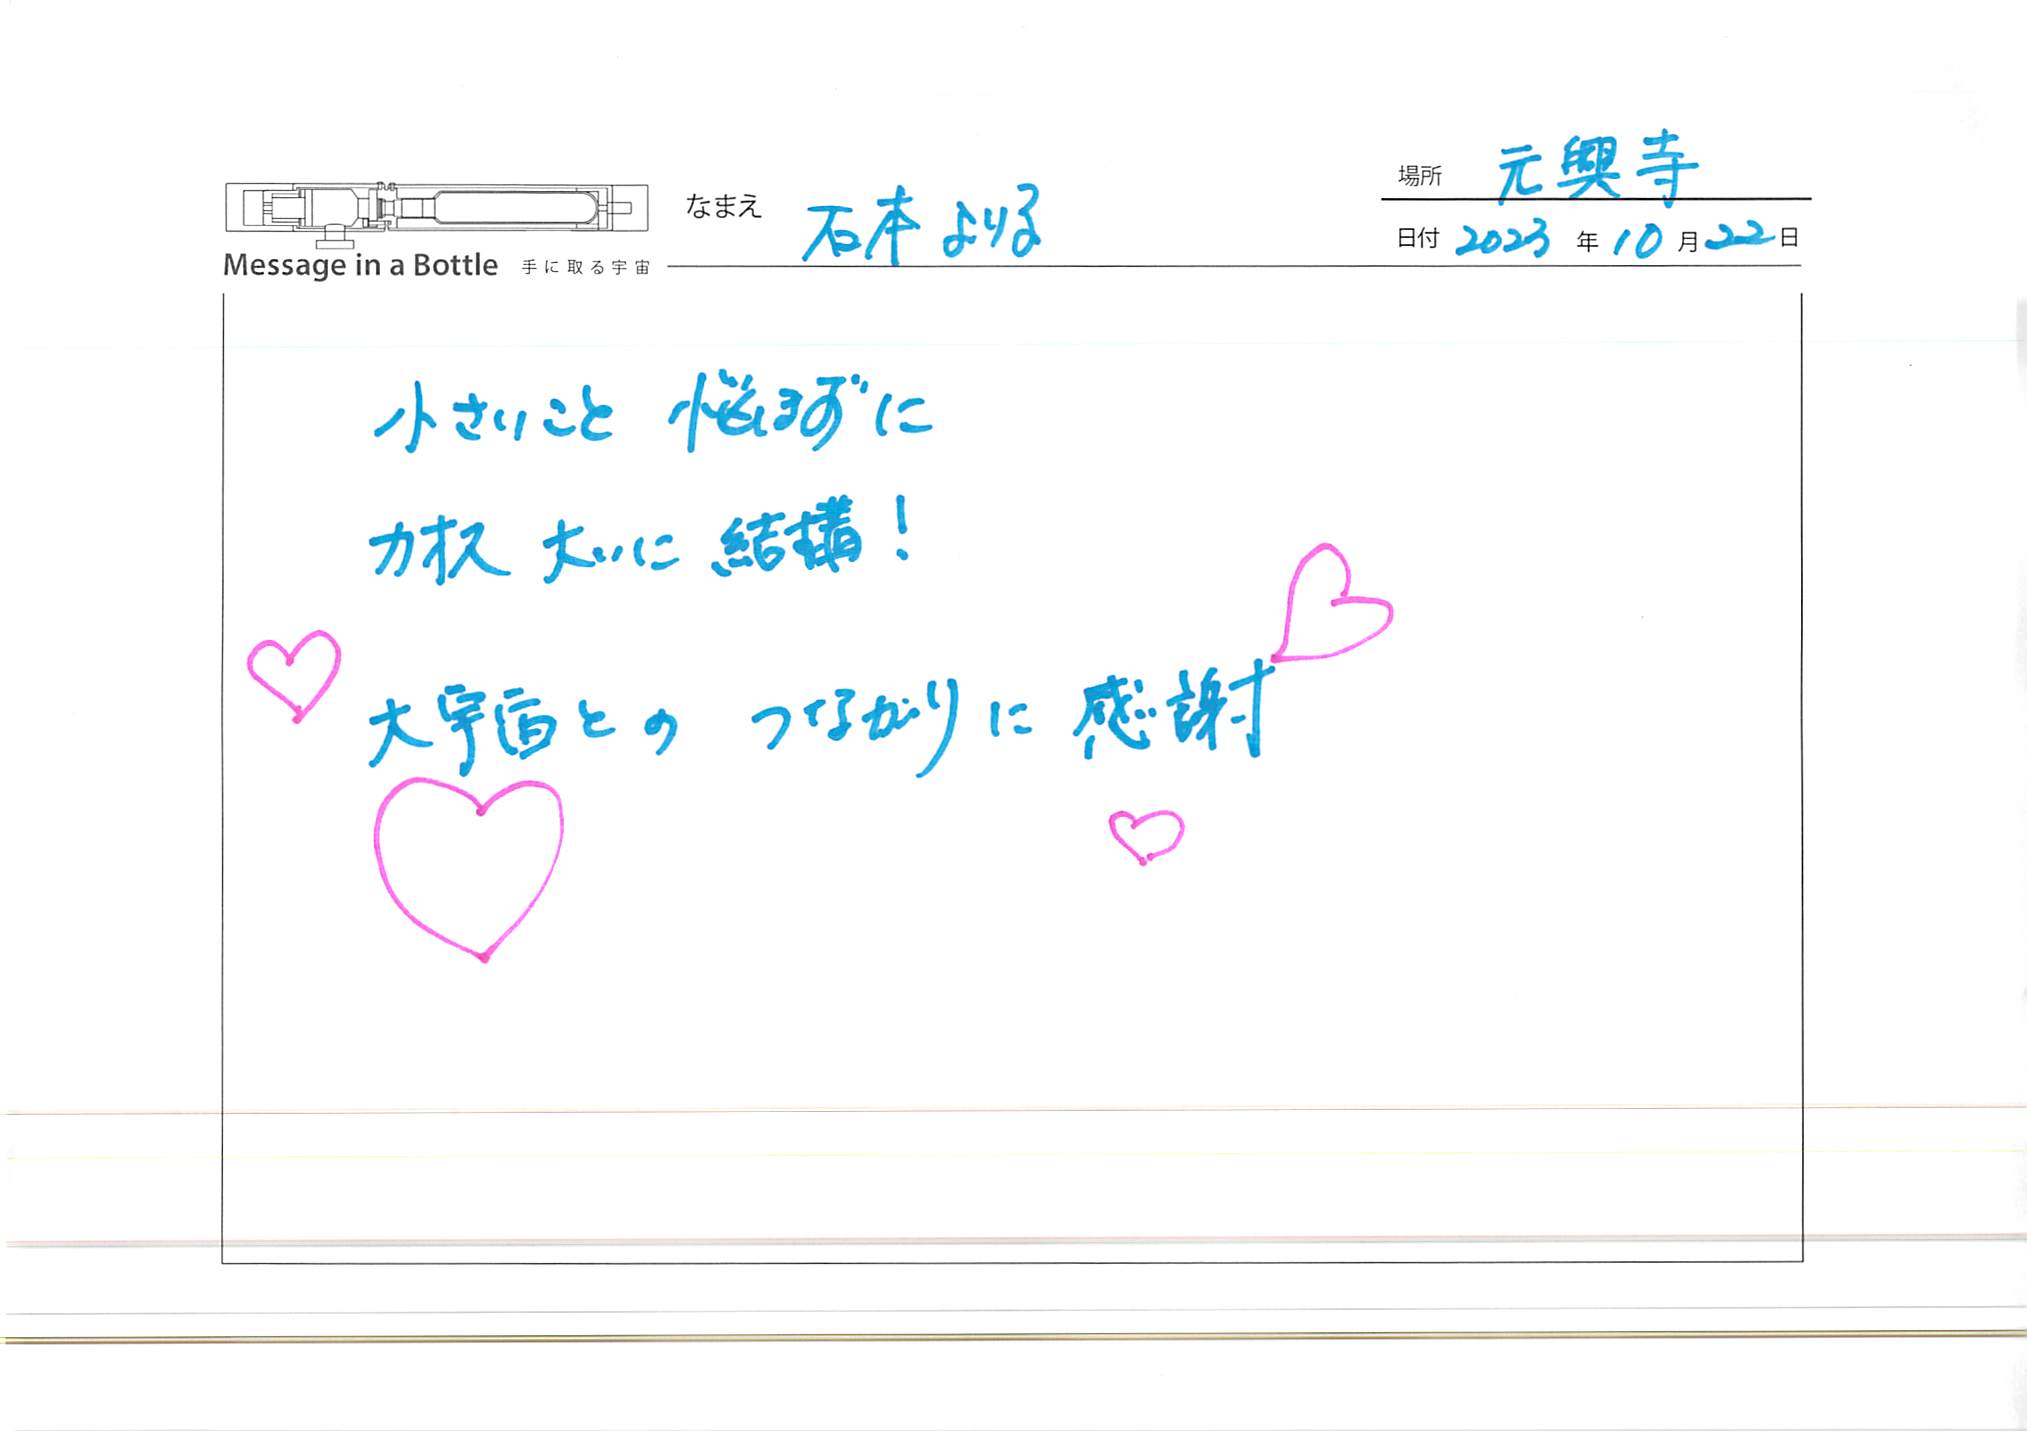 場所 元興寺
なまえ 石本よりる
日付 2023年10月22日
Message in a Bottle 手に取る宇宙
小さいこと 悩まずに
カオス 大いに 結構！
大宇宙との つながりに 感謝